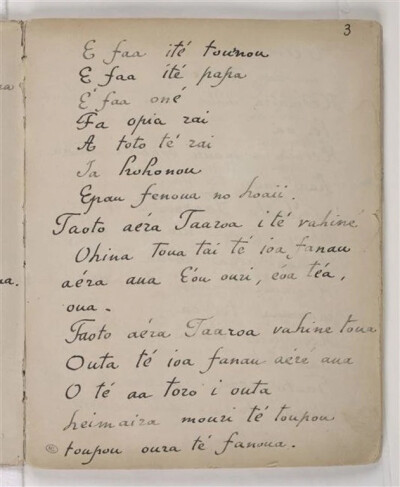 3
E faa ité tournou
E faa ité papa
E faa oné
Fa opia rai
A toto té rai
Ia hohonou
Epau fenoua no hoaii.
Taoto aéra Taaroa i té vahiné
Ohina Toua tai té ioa, fanau
aéra aua Eóu ouri, éoa téa,
oua.
Taoto aéra Taaroa vahine toua
Outa té ioa fanau aéré aua
O té aa toro i outa
heimaira mouri té toupou
toupou oura té fanoua.